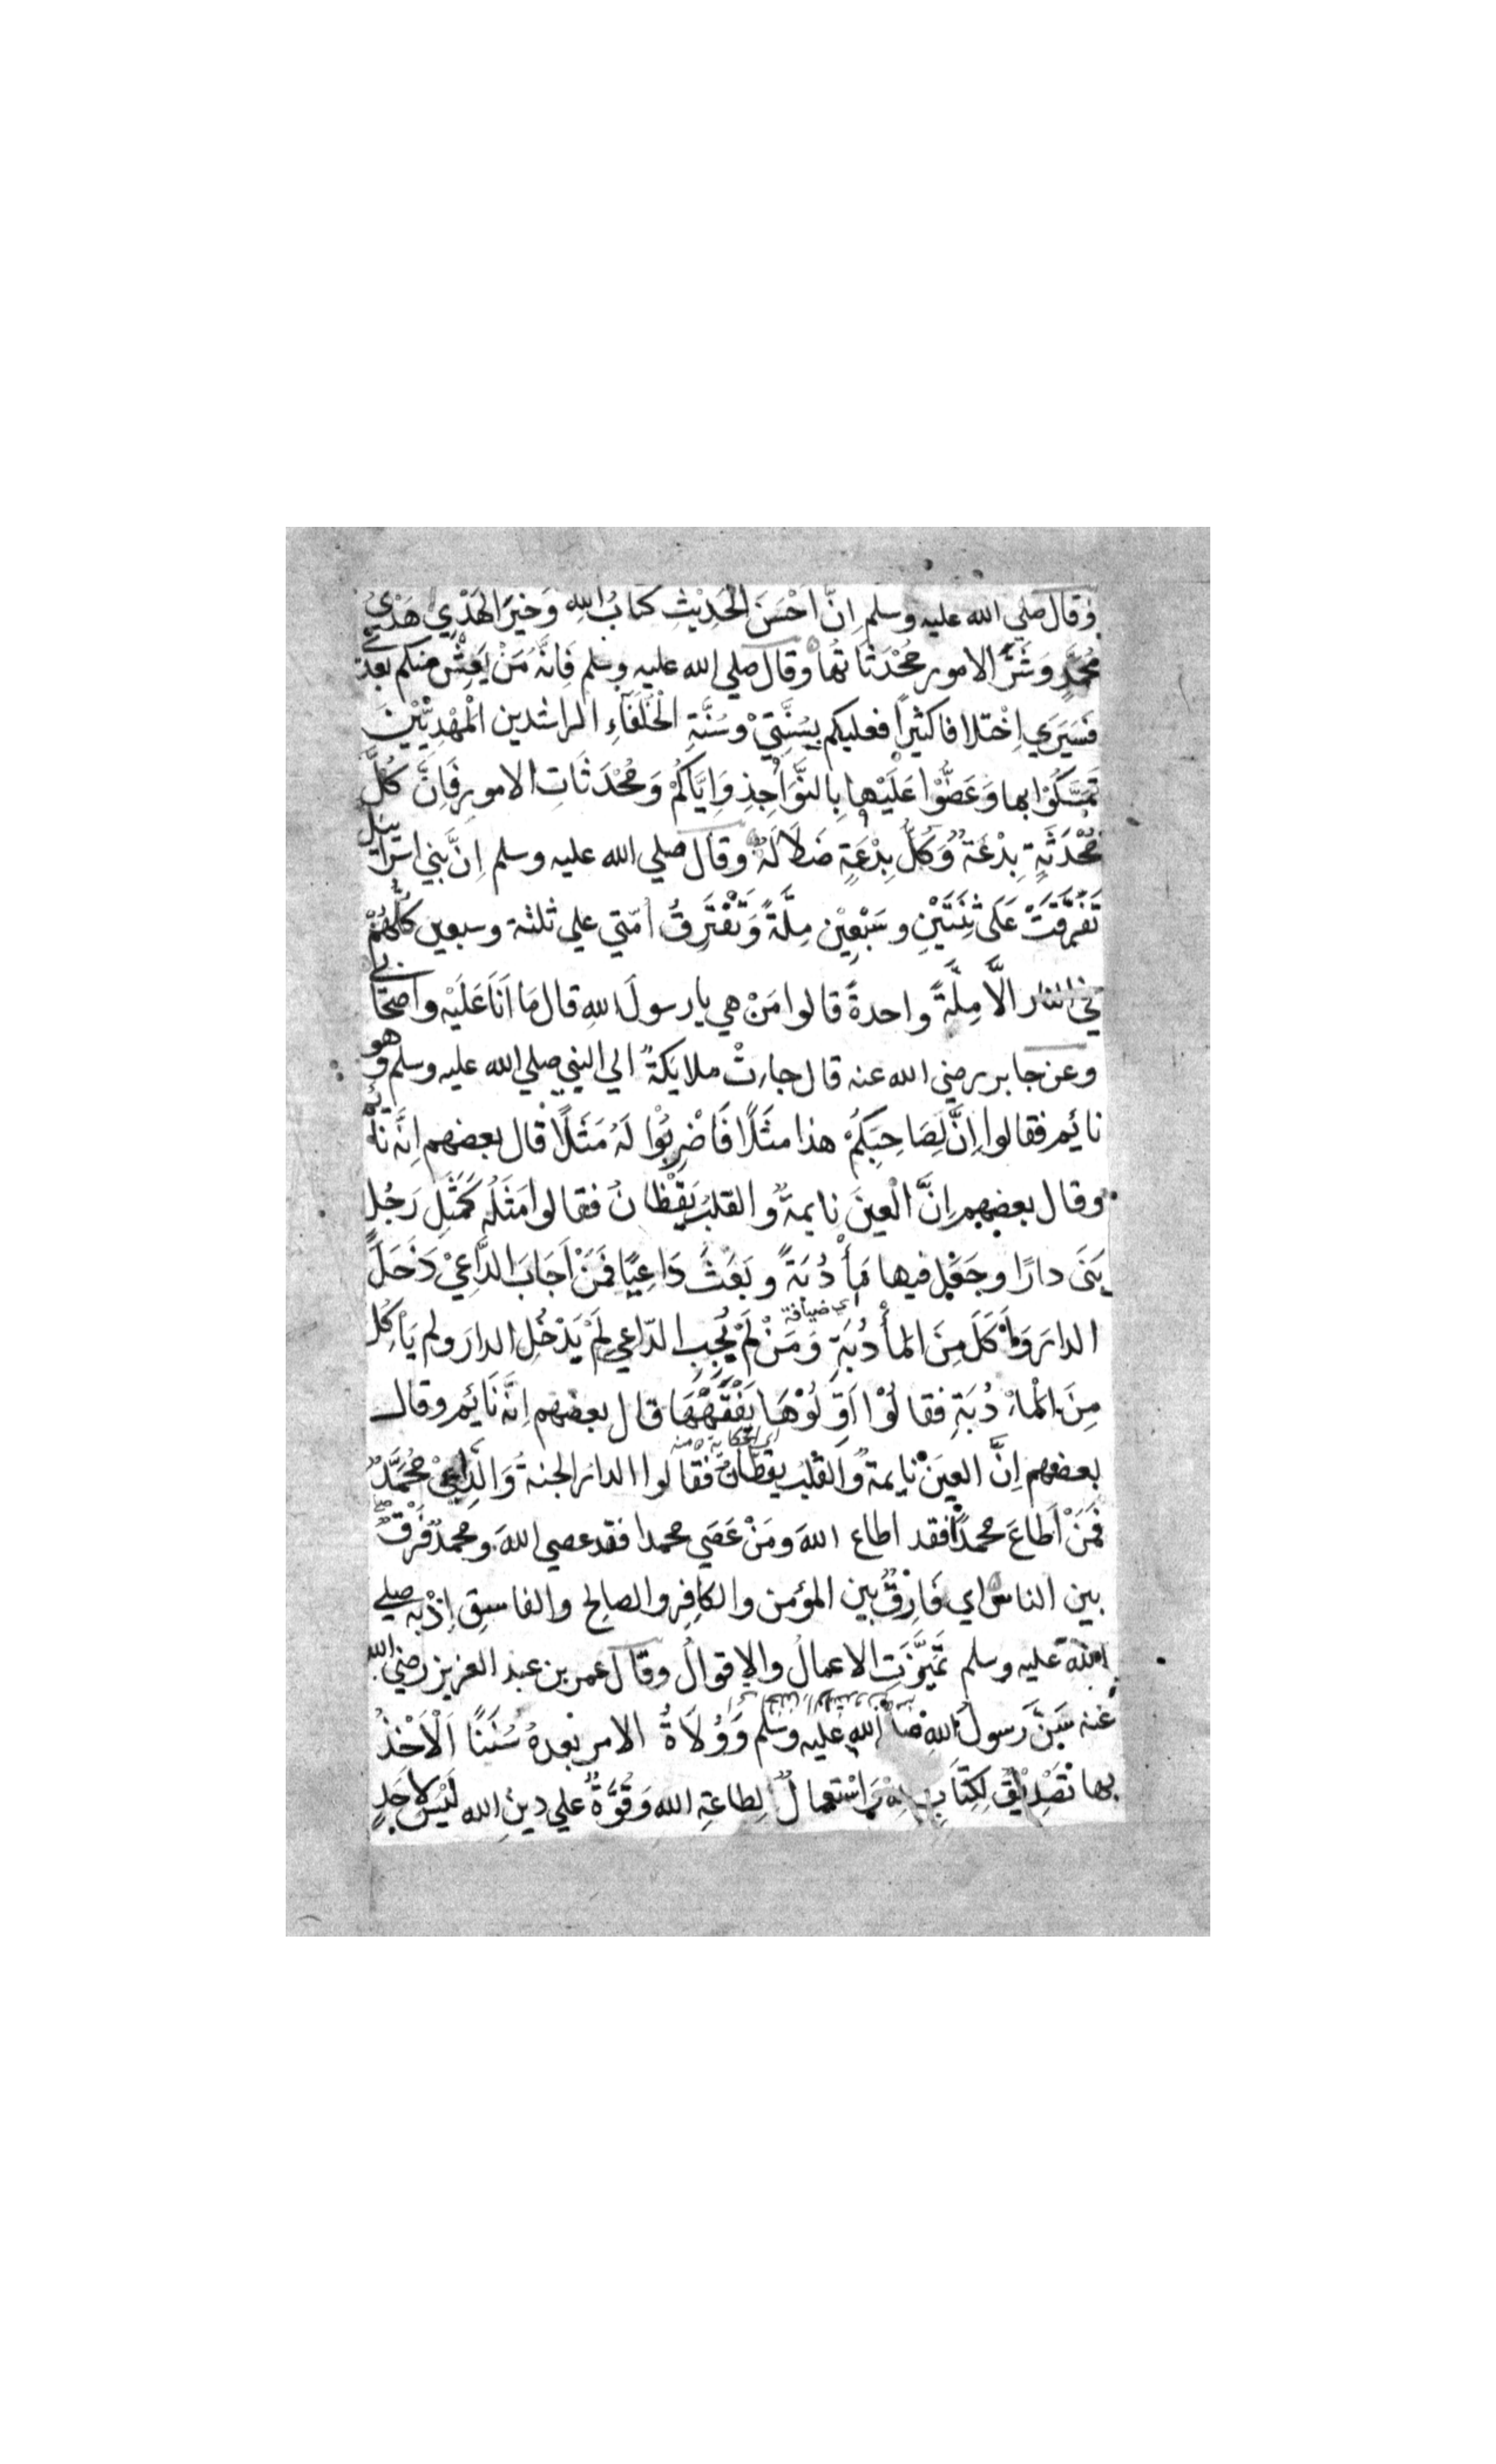 وقال صلي الله عليه وسلم اِنَّ اَحْسَنَ الحَدِيْثِ كتابُ اللهِ وَخَيْرَ الهَدْيِ هَدْيُ
مُحَمَّدٍ وَشَرَّ الامورِ مُحْدَثَاتُها وقال صلي الله عليه وسلم فَاِنَّهُ مَنْ يَعِشْ منكم بعدي
فَسَيَرَي اِخْتلافا كثيراً فعليكم بِسُنَّتِيْ وسُنَّةِ الْخُلَفَاءِ الراشدين الْمَهْدِيِّيْنَ
تَمَسَّكُوْا بها وَعَضُّوْا عَلَيْها بِالنَّوَاجِذِ وَاِيَّاكُمْ وَمُحْدَثَاتِ الامورِ فَاِنَّ كُلَّ
مُحْدَثَةٍ بِدْعَةٌ وَكُلَّ بِدْعَةٍ ضَلَالَةٌ وقال صلي الله عليه وسلم اِنَّ بني اسرائيل
تَفَرَّقَتْ عَلَى ثِنَتَيْنِ وسَبْعِيْن مِلَّةً وَتَفْتَرِقُ امّتي علي ثلثة وسبعين كلُّهُمْ
في النار الَّا مِلَّةً واحدةً قالوا مَنْ هي يا رسولَ اللهِ قال مَا اَنَا عَلَيْهِ واصحابي
وعن جابر رضي الله عنه قال جاءتْ ملايكةٌ الي النبي صلي الله عليه وسلم وهو
نائيم فقالوا اِنَّ لِصَاحِبِكُمْ هذا مثَلًا فَاضْرِبُوْا لَهُ مَثَلًا قال بعضهم اِنَّه نائم
وقال بعضهم اِنَّ الْعينَ نايمةٌ والقلبَ يَقْظانُ فقالوا مَثَلُه كَمَثَلِ رَجُلٍ
بَنَى دارًا وجَعَلَ فيها مَأْدُبَةً وبَعَثَ دَاعِيًا فَمَنْ اَجَابَ الدَّاعِيْ دَخَلَ
الدارَ وَاَكَلَ مِنَ المأْدُبَةِ وَمَنْ لَمْ يُجِبِ الدّاعي لَمْ يَدْخُلِ الدارَ ولم يَأْكُلْ
اي ضيافة
مِنَ الْماءْدُبَةِ فقالُوْا اَوِّلُوْهَا يَفْقَهْهَا قال بعضهم اِنَّه نَائيم وقال
اي الحكاية منه
بعضهم اِنَّ العينَ نايمةٌ وَالْقلْبَ يقظانُ فقالوا الدارُ الجنةُ وَالدَّاعِيْ مُحَمَّدٌ
فَمَنْ اَطاعَ محمدًا فقد اطاع اللهَ ومَنْ عَصَي محمدا فقد عصي اللهَ ومحمدٌ فَرْقٌ
بين الناس اي فَارِقٌ بين المؤمن والكافِر والصالِح والفاسِق اِذْ بِهِ صلي
الله عليه وسلم تَمَيَّزَتِ الاعمالُ والاقوالُ وقال عمر بن عبد العزيز رضي الله
عنه سَنَّ رسولُ اللهِ صلي الله عليه وسلم وَوُلَاةُ الامرِ بعدهُ سُنَنًا اَلْاَخْذُ
بها تَصْدِيْقٌ لِكِتَابِ الله وَاسْتعمالٌ لِطاعةِ الله وَقُوَّةٌ علي دينِ الله لَيْسَ لِاَحَدٍ